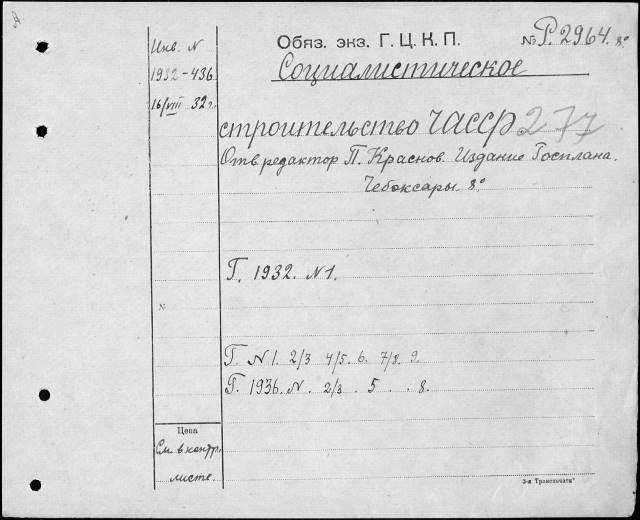 Инв. N
1932-436
16/VIII 32 г.
Обяз. экз. Г. Ц. К. П.
№ Р. 2964. 8°
Социалистическое
строительство ЧАССР 277
Отв. редактор П. Краснов. Издание Госплана.
Чебоксары. 8°
Г. 1932. N 1.
№
Г. N 1. 2/3 4/5. 6. 7/8. 9.
Г. 1936. N. 2/3 . 5 . . 8.
Цена
См. в контр.
листе.
3-я Транспечать